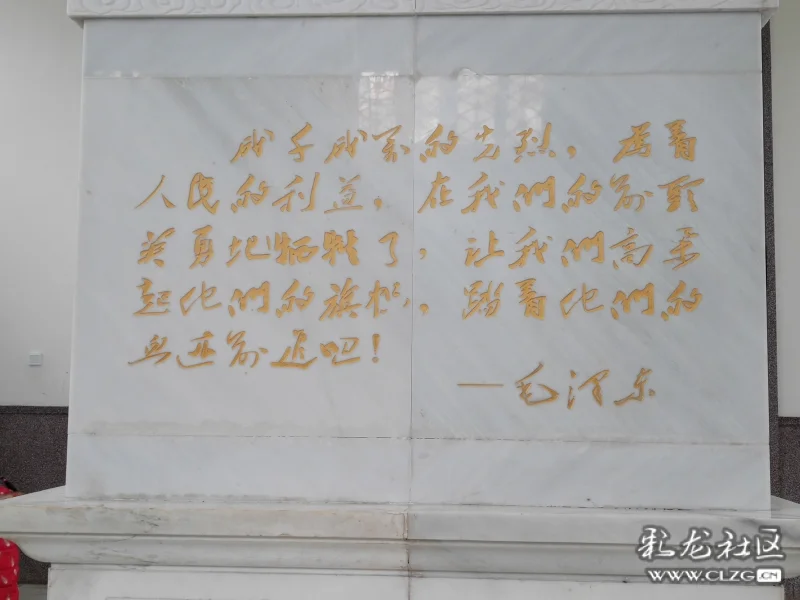 成千成万的先烈，為着
人民的利益，在我們的前頭
英勇地牺牲了，让我們高举
起他們的旗帜，踏着他們的
血迹前进吧！
——毛泽东
彩龙社区
WWW.CLZG.CN